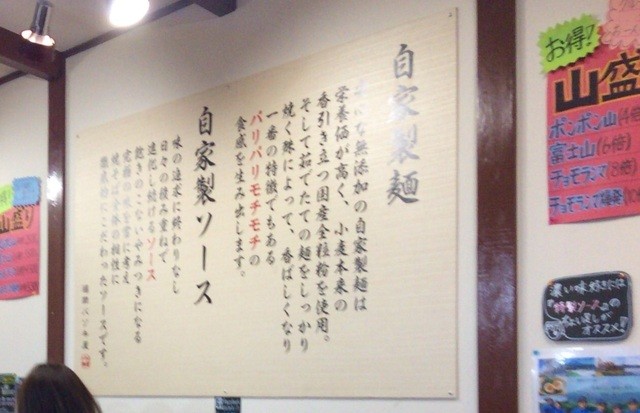 自家製麺
無添加の自家製麺は
栄養価が高く、小麦本来の
香引き立つ国産全粒粉を使用。
そして茹でたての麺をしっかり
焼く事によって、香ばしくなり
一番の特徴でもある
パリパリモチモチの
食感を生み出します。
自家製ソース
味の追求に終わりなし
日々の積み重ねで
進化し続けるソース
飽きのこないやみつきになる
焼そば全体の相性に
こだわったソースです。
お得!
山盛
ポンポン山(4倍)
富士山(6倍)
チョモランマ(8倍)
チョモランマ爆発
濃い味好きには
特製ソースの
オススメ!
山盛り